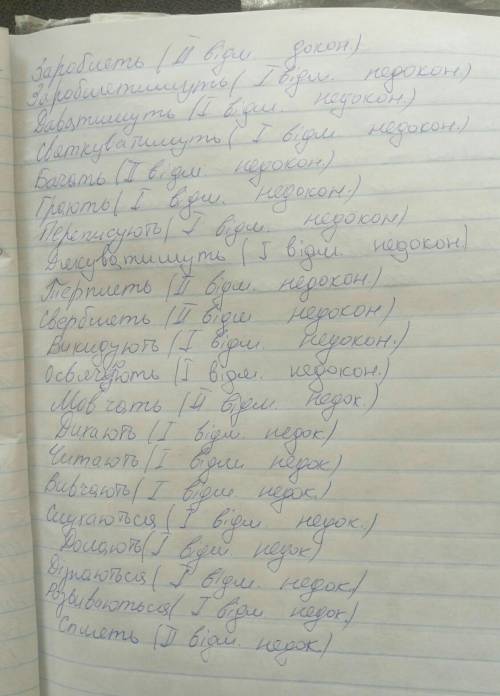 Зароблеть (ІІ відм. докон.)
Зароблетимуть (І відм. недокон.)
Даватимуть (І відм. недокон.)
Святкуватимуть (І відм недокон.)
Бачать (ІІ відм недокон)
Грають (І відм. недокон.)
Переписують (І відм. недокон)
Дякуватимуть (І відм. недокон)
Терплеть (ІІ відм. недокон.)
Сверблеть (ІІ відм недокон)
Викидують (І відм. недокон.)
(І відм. недокон.)
Мовчать (ІІ відм. недок.)
Дихають (І відм. недок)
Читають (І відм. недок)
Вивчають (І відм недок.)
Слухаються (І відм. недок.)
Долають (І відм. недок)
Дізнаються (І відм. недок.)
Розвиваються (І відм недок.)
Сплеть (ІІ відм. недок)